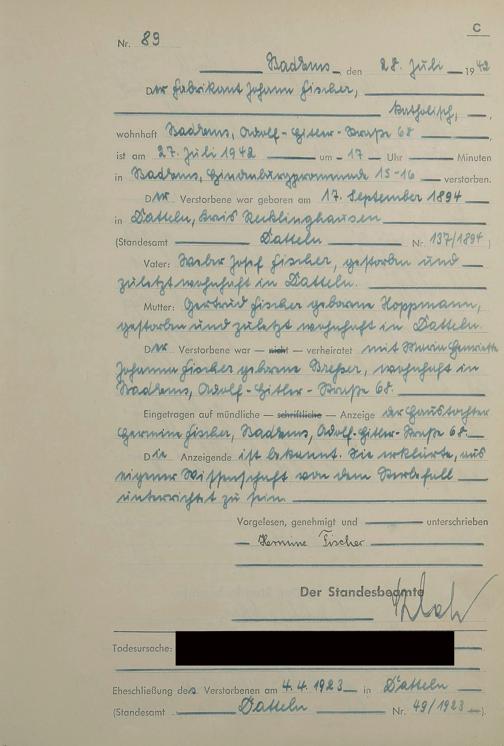 C
Nr. 89
Bad Ems, den 28. Juli 1942
Der Fabrikant Johann Fischer,
katholisch,
wohnhaft Bad Ems, Adolf-Hitler-Straße 68
ist am 27. Juli 1942 um 17 Uhr Minuten
in Bad Ems, Hindenburgpromenade 15-16 verstorben.
Der Verstorbene war geboren am 17. September 1894
in Datteln, Kreis Recklinghausen
(Standesamt Datteln Nr. 137/1894)
Vater: Weber Josef Fischer, gestorben und
zuletzt wohnhaft in Datteln.
Mutter: Gertrud Fischer geborene Hoppmann,
gestorben und zuletzt wohnhaft in Datteln.
Der Verstorbene war — nicht — verheiratet mit Maria Henriette
Johanna Fischer geborene Bresser, wohnhaft in
Bad Ems, Adolf-Hitler-Straße 68.
Eingetragen auf mündliche — schriftliche — Anzeige der Haustochter
Hermine Fischer, Bad Ems, Adolf-Hitler-Straße 68.
Die Anzeigende ist bekannt. Sie erklärte, aus
eigener Wissenschaft von dem Sterbefall
unterrichtet zu sein.
Vorgelesen, genehmigt und unterschrieben
Hermine Fischer
Der Standesbeamte
Todesursache:
Eheschließung des Verstorbenen am 4.4.1923 in Datteln
(Standesamt Datteln Nr. 49/1923).